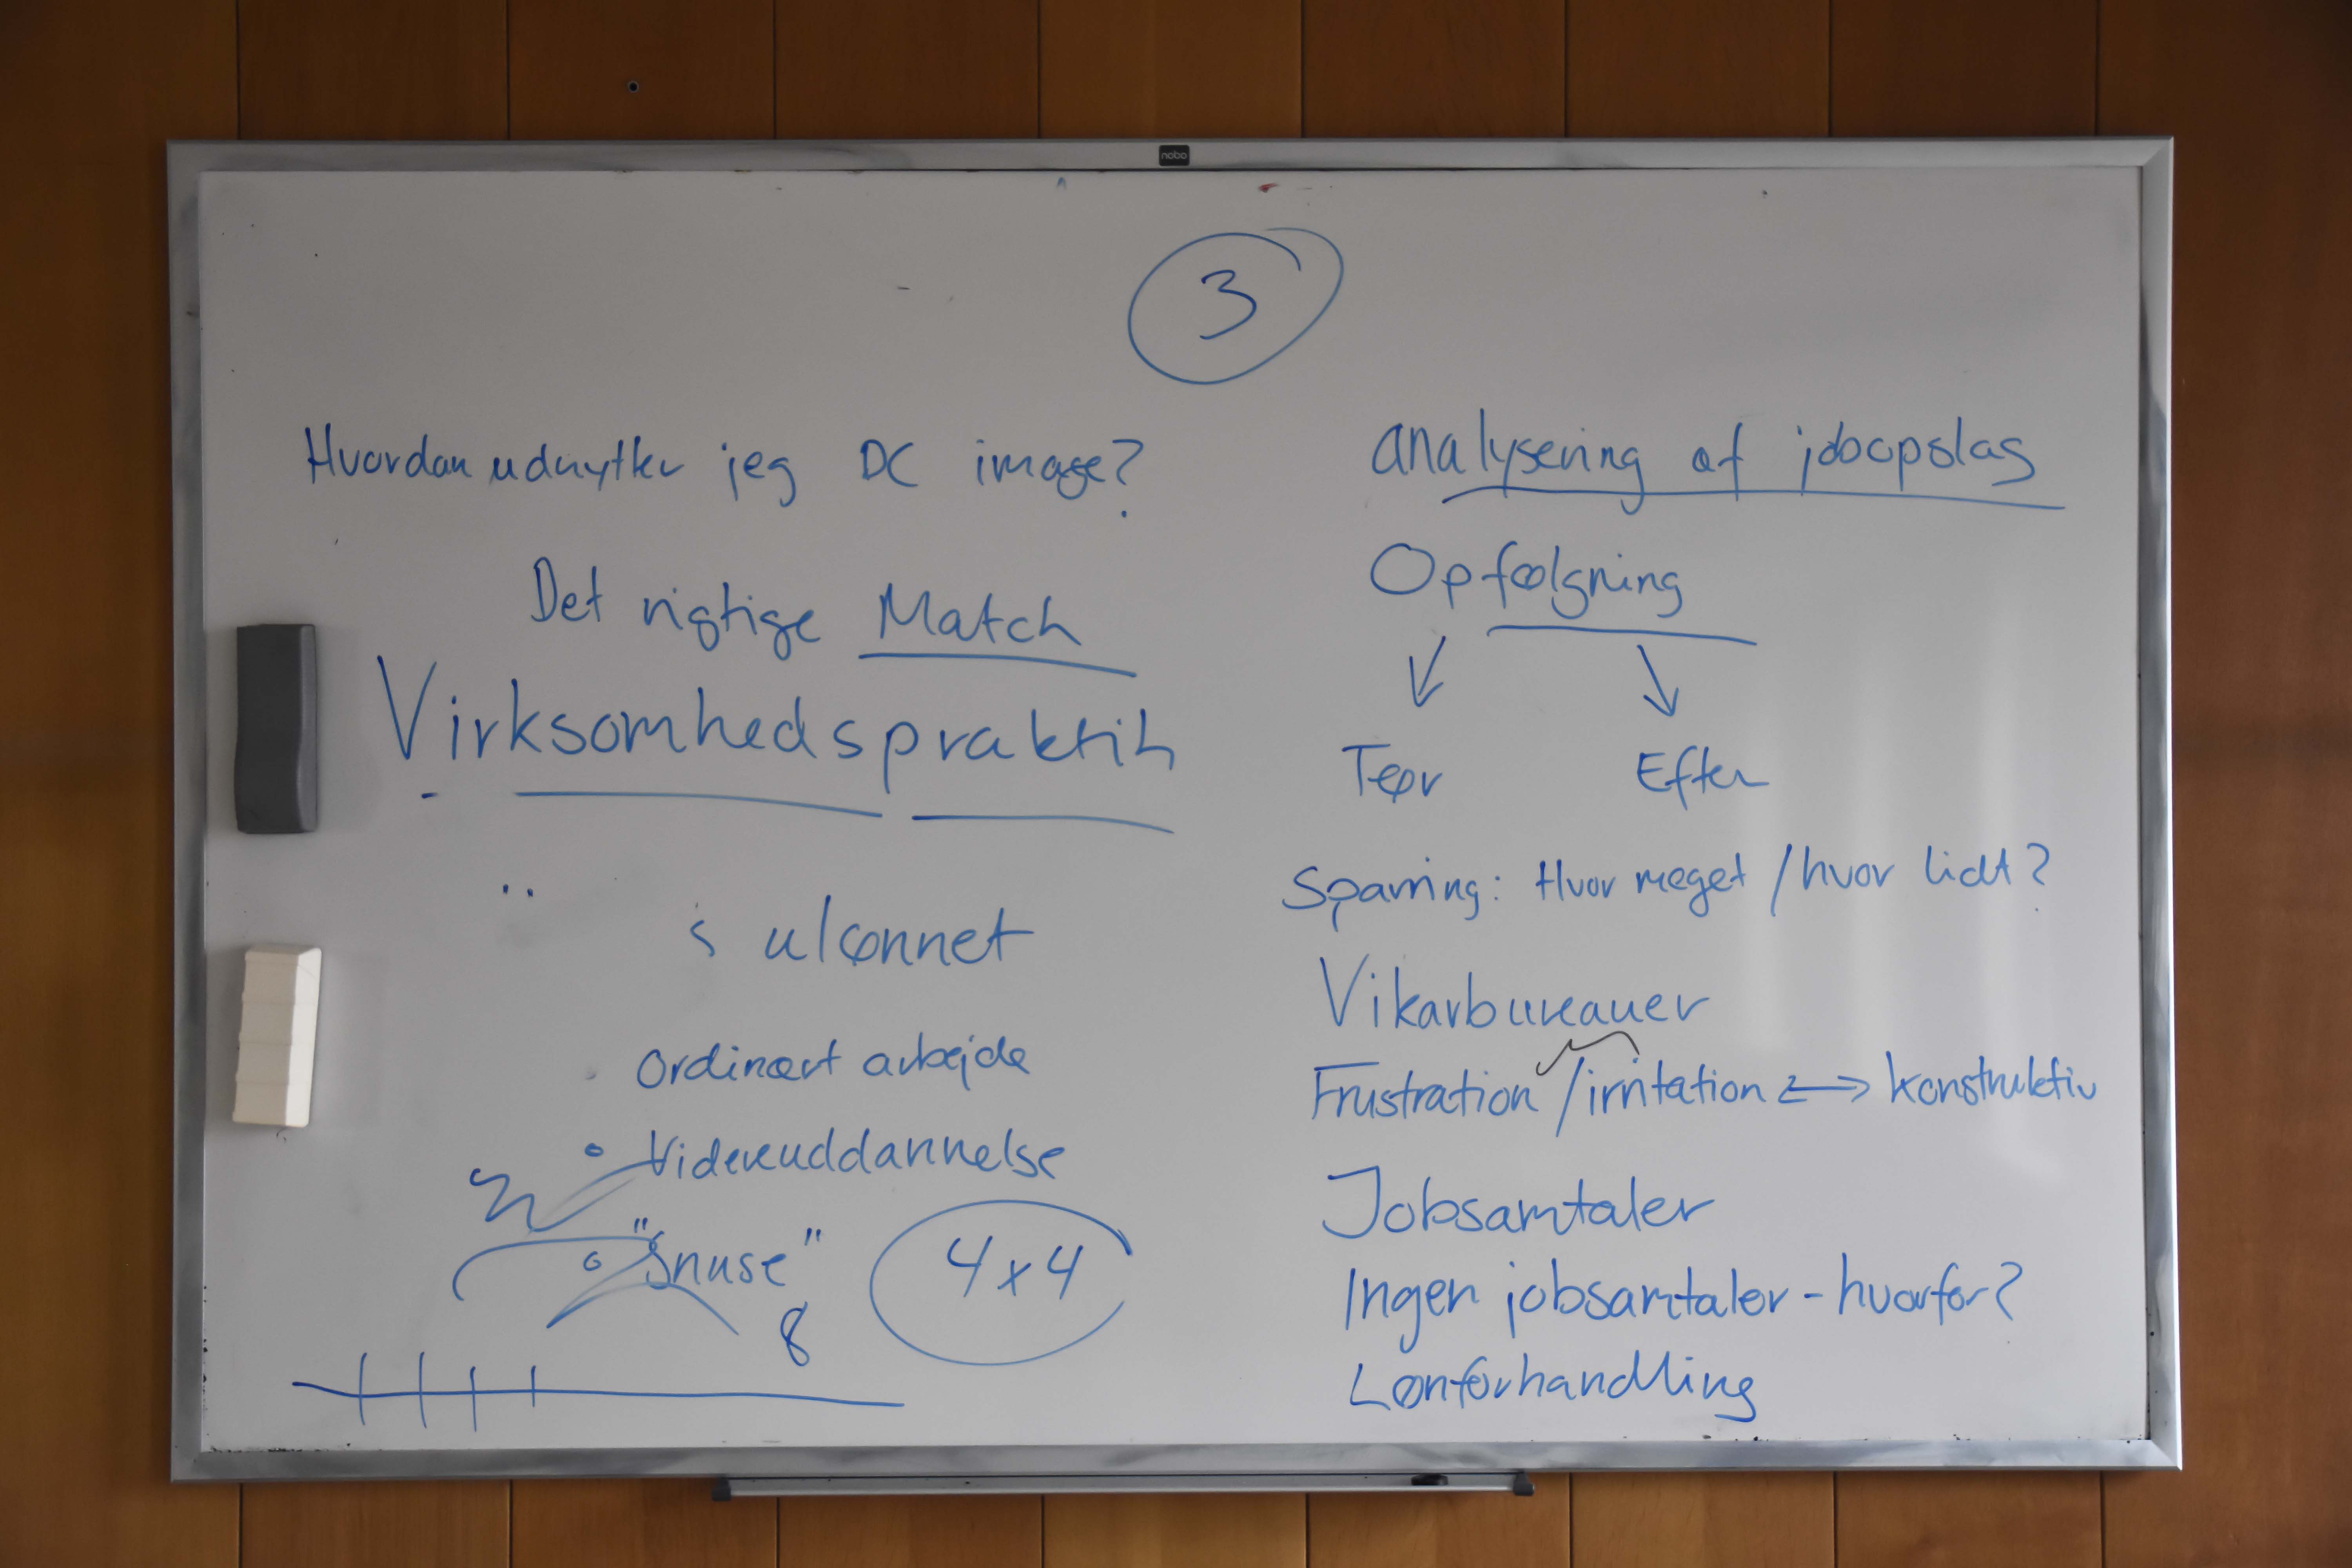 nobo
3
Hvordan udnytter jeg DC image?
Det rigtige Match
Virksomhedspraktik
s ulønnet
Ordinært arbejde
Videreuddannelse
"Snuse"
8
4x4
analysering af jobopslag
Opfølgning
Før Efter
Sparring: Hvor meget / hvor lidt?
Vikarbureauer
Frustration / irritation ↔ konstruktiv
Jobsamtaler
Ingen jobsamtaler - hvorfor?
Lønforhandling